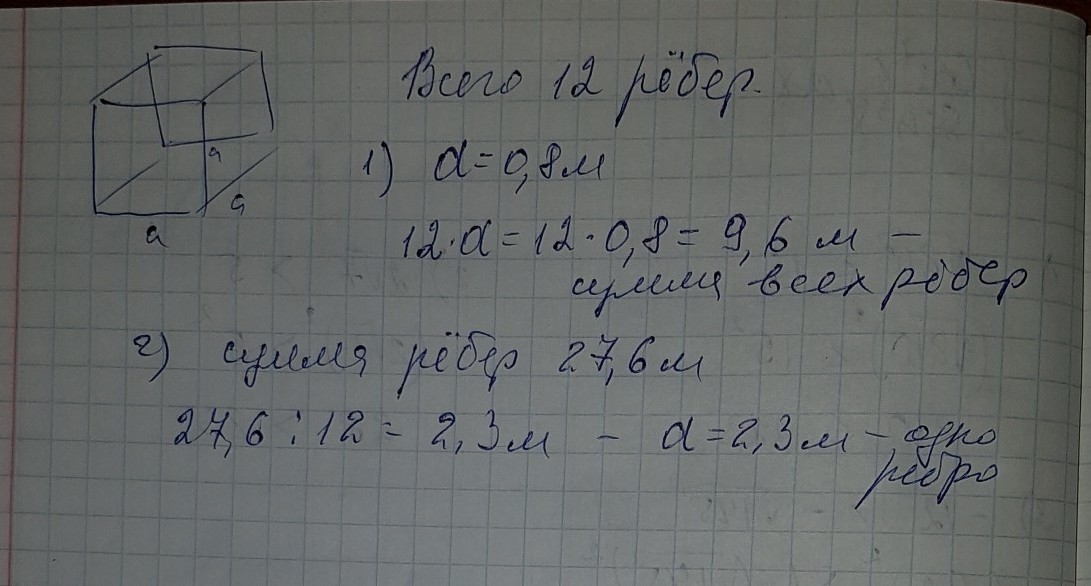 Всего 12 рёбер.
1) a=0,8м
12·a=12·0,8=9,6 м –
сумма всех рёбер
a
a
a
2) сумма рёбер 27,6м
27,6:12= 2,3м – a=2,3м – одно
ребро